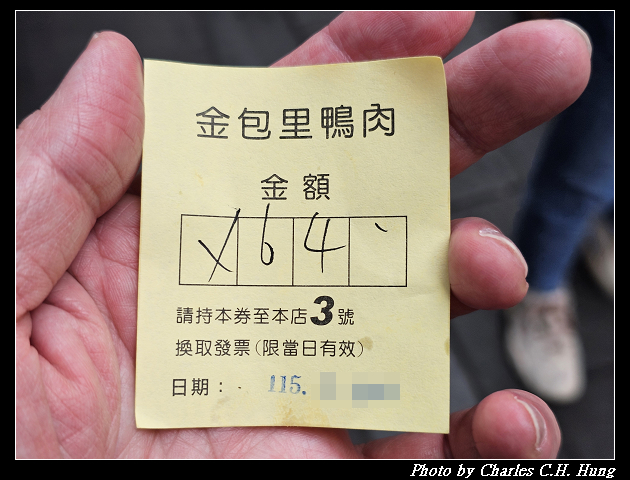 金包里鴨肉
金額
X 6 4 、
請持本券至本店3號
換取發票(限當日有效)
日期： 115.
Photo by Charles C.H. Hung